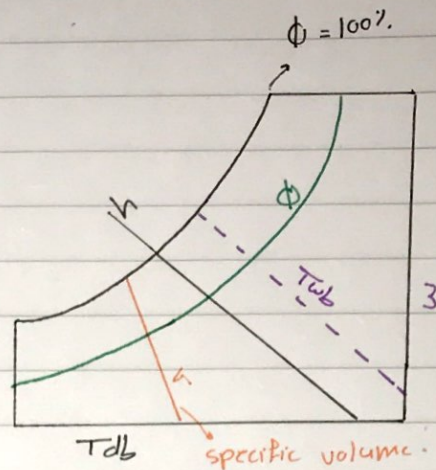 ϕ = 100%.
h
ϕ
Twb
ω
v
Tdb
specific volume.